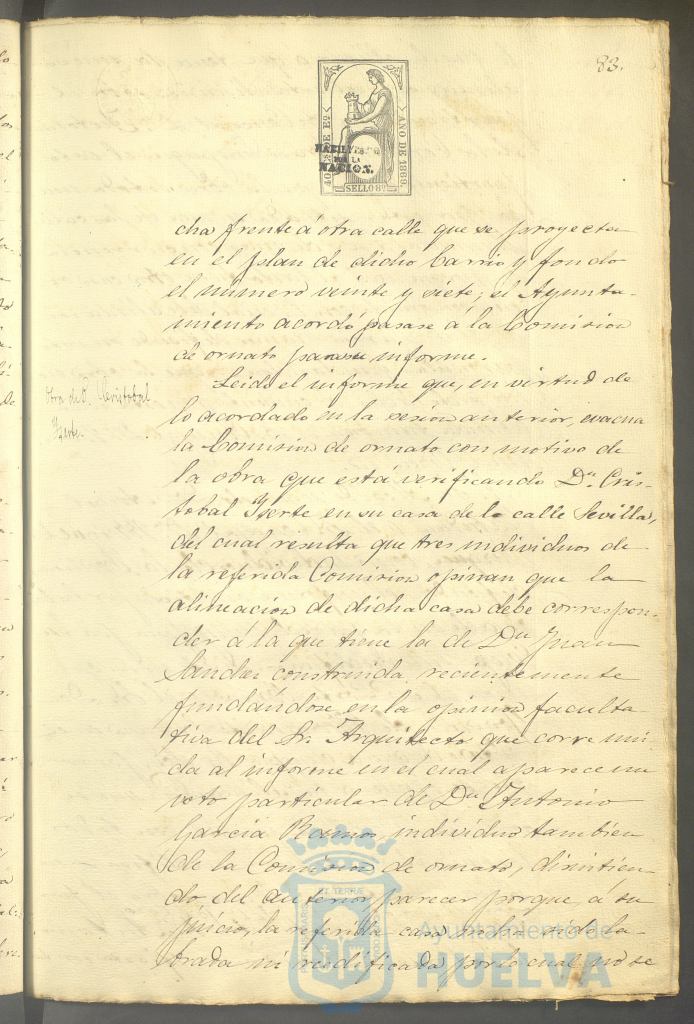 83.
40 CS. DE Eº.
AÑO DE 1869.
HABILITADO
POR LA
NACION.
SELLO 8º
cha frente á otra calle que se proyecta
en el plan de dicho barrio y fondo
el número veinte y siete; el Ayunta-
miento acordó pasase á la Comision
de ornato para su informe.
Obra de D. Cristobal
Yzerte.
Leido el informe que, en virtud de
lo acordado en la sesion anterior, evacua
la Comision de ornato con motivo de
la obra que está verificando Dn. Cris-
tobal Yzerte en su casa de la calle Sevilla,
del cual resulta que tres individuos de
la referida Comision opinan que la
alineacion de dicha casa debe correspon-
der á la que tiene la de Dn Juan
Sandez construida recientemente
fundándose en la opinion faculta
tiva del Sr. Arquitecto que corre uni-
da al informe en el cual aparece un
voto particular de Dn Antonio
Garcia Ramos, individuo tambien
de la Comision de ornato, disintien-
do, del anterior parecer porque, á su
juicio, la referida casa sido la-
brada ni reedificada por lo cual no se
Ayuntamiento de
HUELVA